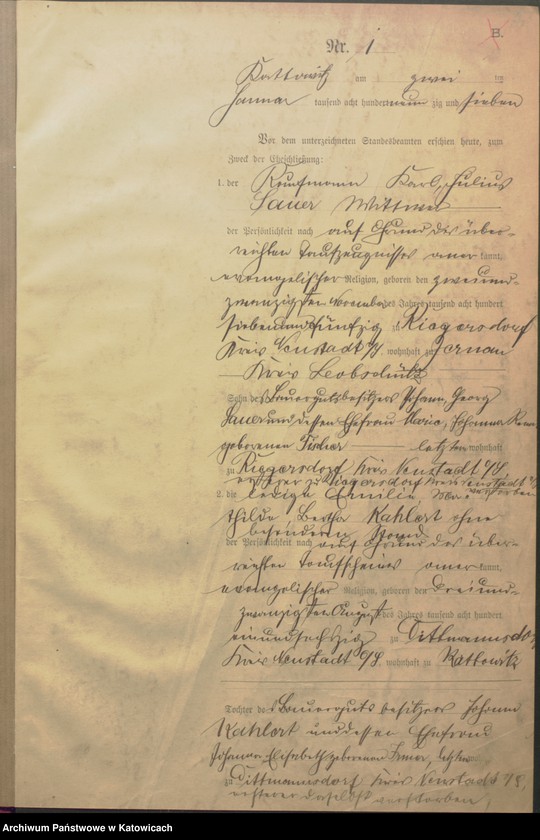 B.
Nr. 1
Kattowitz am zwei ten
Januar tausend acht hundert neun zig und sieben
Vor dem unterzeichneten Standesbeamten erschien heute, zum
Zweck der Eheschließung:
1. der Kaufmann Karl, Julius
Sauer Wittwer
der Persönlichkeit nach auf Grund des über-
reichten Taufzeugnisses aner kannt,
evangelischer Religion, geboren den zweiund-
zwanzigsten November des Jahres tausend acht hundert
siebenundfünfzig zu Riegersdorf
Kreis Neustadt O/S, wohnhaft zu
Kreis Leobschütz
Sohn des Bauergutsbesitzers Johann, Georg
Sauer und dessen Ehefrau Maria, Johanna
geborenen Fischer letztere wohnhaft
zu Riegersdorf Kreis Neustadt O/S
ersterer zu Riegersdorf Kreis Neustadt O/S verstorben
2. die ledige Emilie, Ma-
thilde Bertha Kahlert ohne
besonderen Stand
der Persönlichkeit nach auf Grund des über-
reichten Taufscheines aner kannt,
evangelischer Religion, geboren den dreiund-
zwanzigsten August des Jahres tausend acht hundert
einundsechszig zu Dittmannsdorf
Kreis Neustadt O/S, wohnhaft zu Kattowitz
Tochter des Bauerguts besitzers Johann
Kahlert und dessen Ehefrau
Johanna Elisabeth geborenen
zu Dittmannsdorf Kreis Neustadt O/S,
ersterer daselbst verstorben,
Archiwum Państwowe w Katowicach